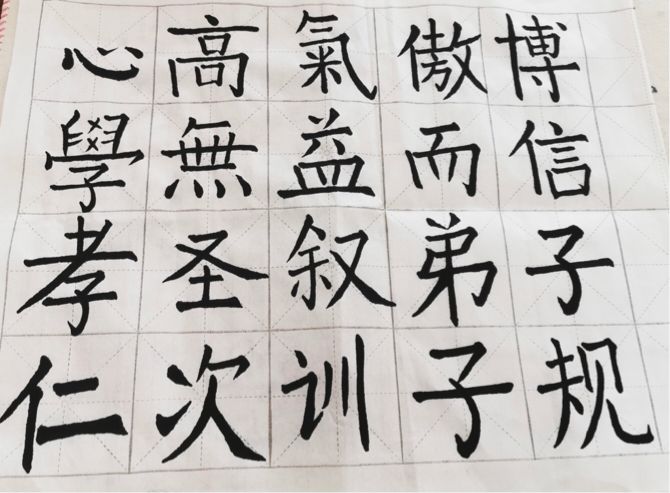 心高氣傲博
學無益而信
孝圣叙弟子
仁次训子规